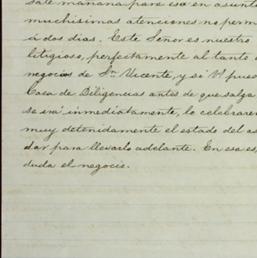 sale mañana para esa en asunt
muchisimas atenciones no perm
á dos dias. Este Señor es nuestro
litigioso, perfectamente al tanto
negocios de Sn Vicente, y si V. pued
Casa de Diligencias antes de que salga
se irá inmediatamente, lo celebrare
muy detenidamente el estado del as
dar para llevarlo adelante. En esa es
duda el negocio.